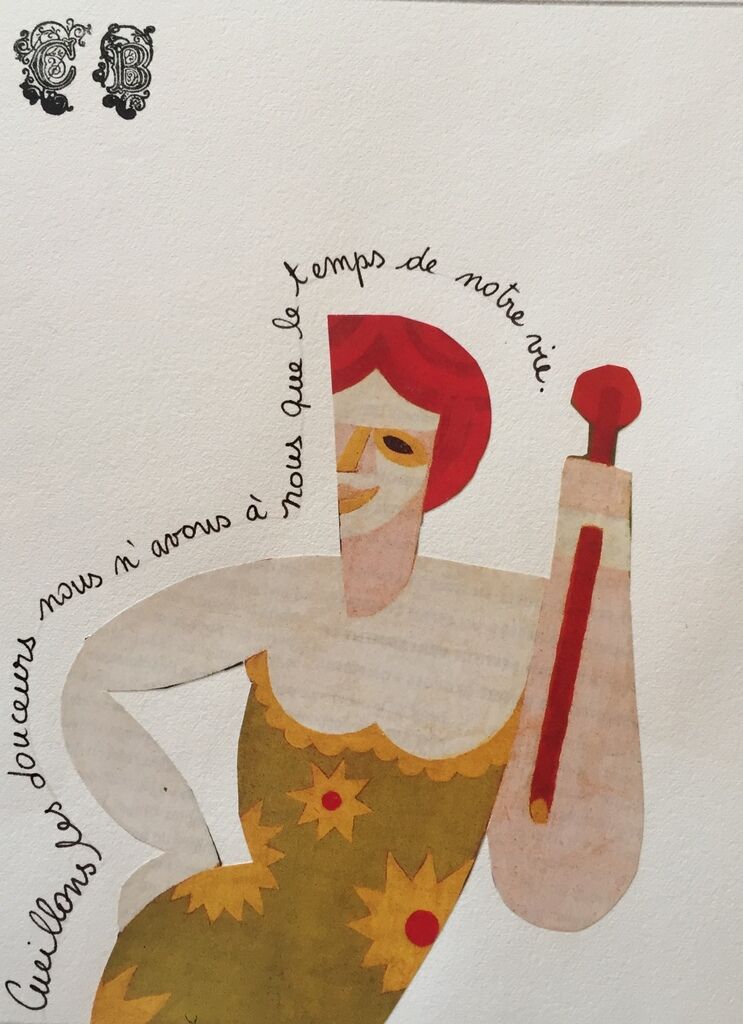 C B
Cueillons les douceurs nous n'avons à nous que le temps de notre vie.